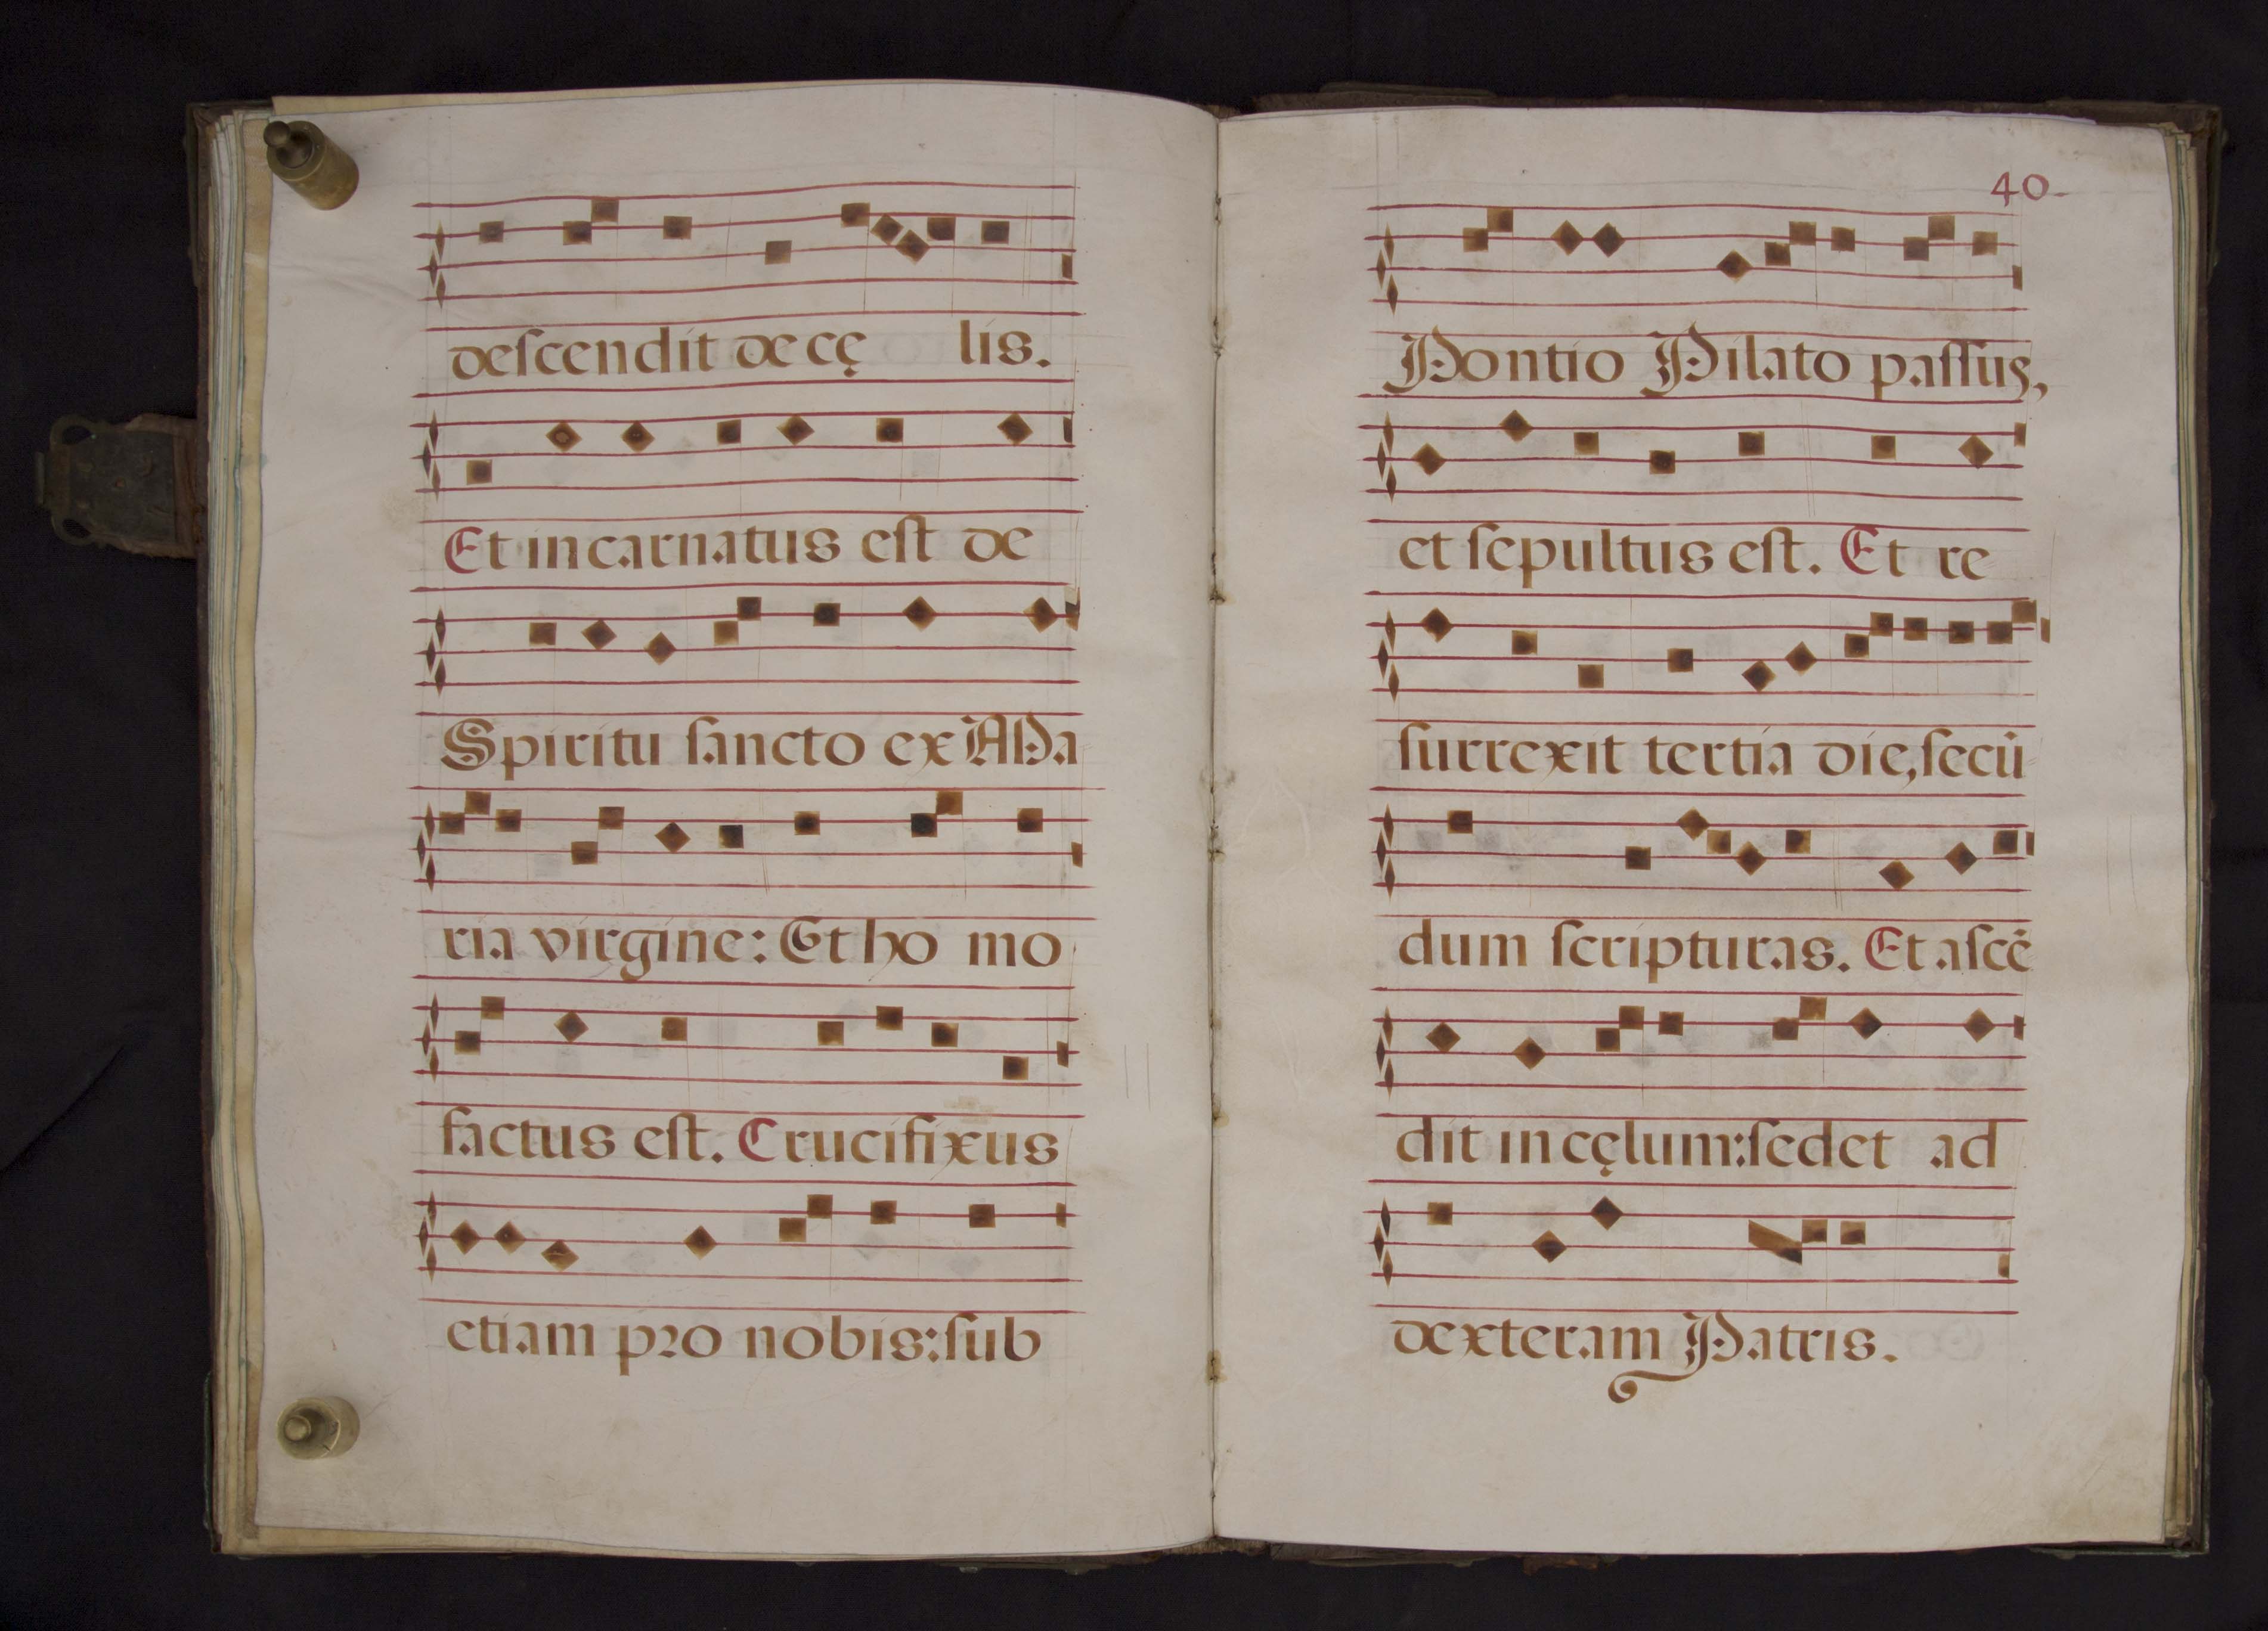 deſcendit de cę lis.
Et incarnatus eſt de
Spiritu ſancto ex Ma
ria virgine: Et ho mo
factus eſt. Crucifixus
etiam pro nobis: ſub
40
Pontio Pilato paſſus,
et ſepultus eſt. Et re
ſurrexit tertia die, ſecū
dum ſcripturas. Et aſcē
dit in cęlum: ſedet ad
dexteram Patris.